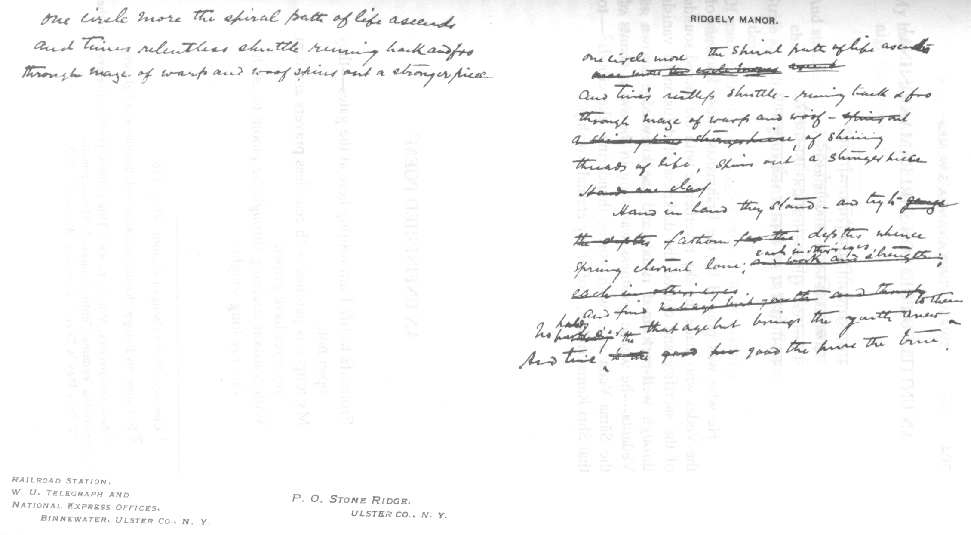 one circle more the spiral path of life ascends
and time's relentless shuttle running back and fro
through maze of warp and woof spins out a stronger piece
RAILROAD STATION,
W. U. TELEGRAPH AND
NATIONAL EXPRESS OFFICES,
BINNEWATER, ULSTER CO., N. Y.
P. O. STONE RIDGE,
ULSTER CO., N. Y.
RIDGELY MANOR.
one circle more the spiral path of life ascends
And time's restless shuttle - running back & fro
through maze of warp and woof - spins out
a shining stronger piece, of shining
threads of life, spins out a stronger piece
Hand in hand they stand - and try to gauge
the depths fathom for the depths whence
each in others eyes
springs eternal love; and work and strength;
each in others eyes.
And find that age but youth and
No hold over that age but brings the youth anew to them
And time the good good the pure the true